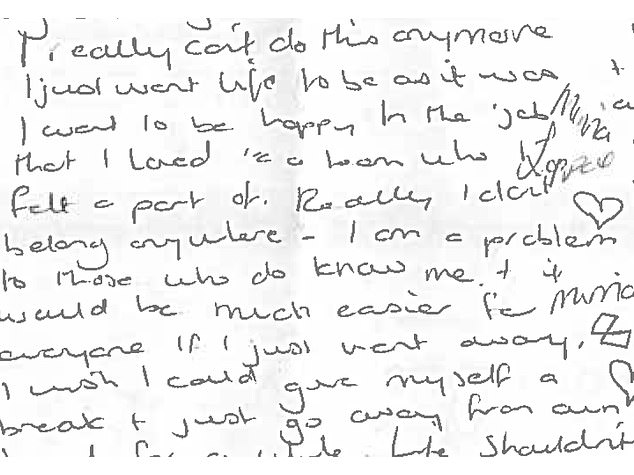 I really can't do this anymore
I just want life to be as it was +
I want to be happy in the job
that I loved in a team who I
felt a part of. Really I don't
belong anywhere - I am a problem
to those who do know me + it
would be much easier for
everyone if I just went away.
I wish I could give myself a
break + just go away from
for a while. Life shouldn't